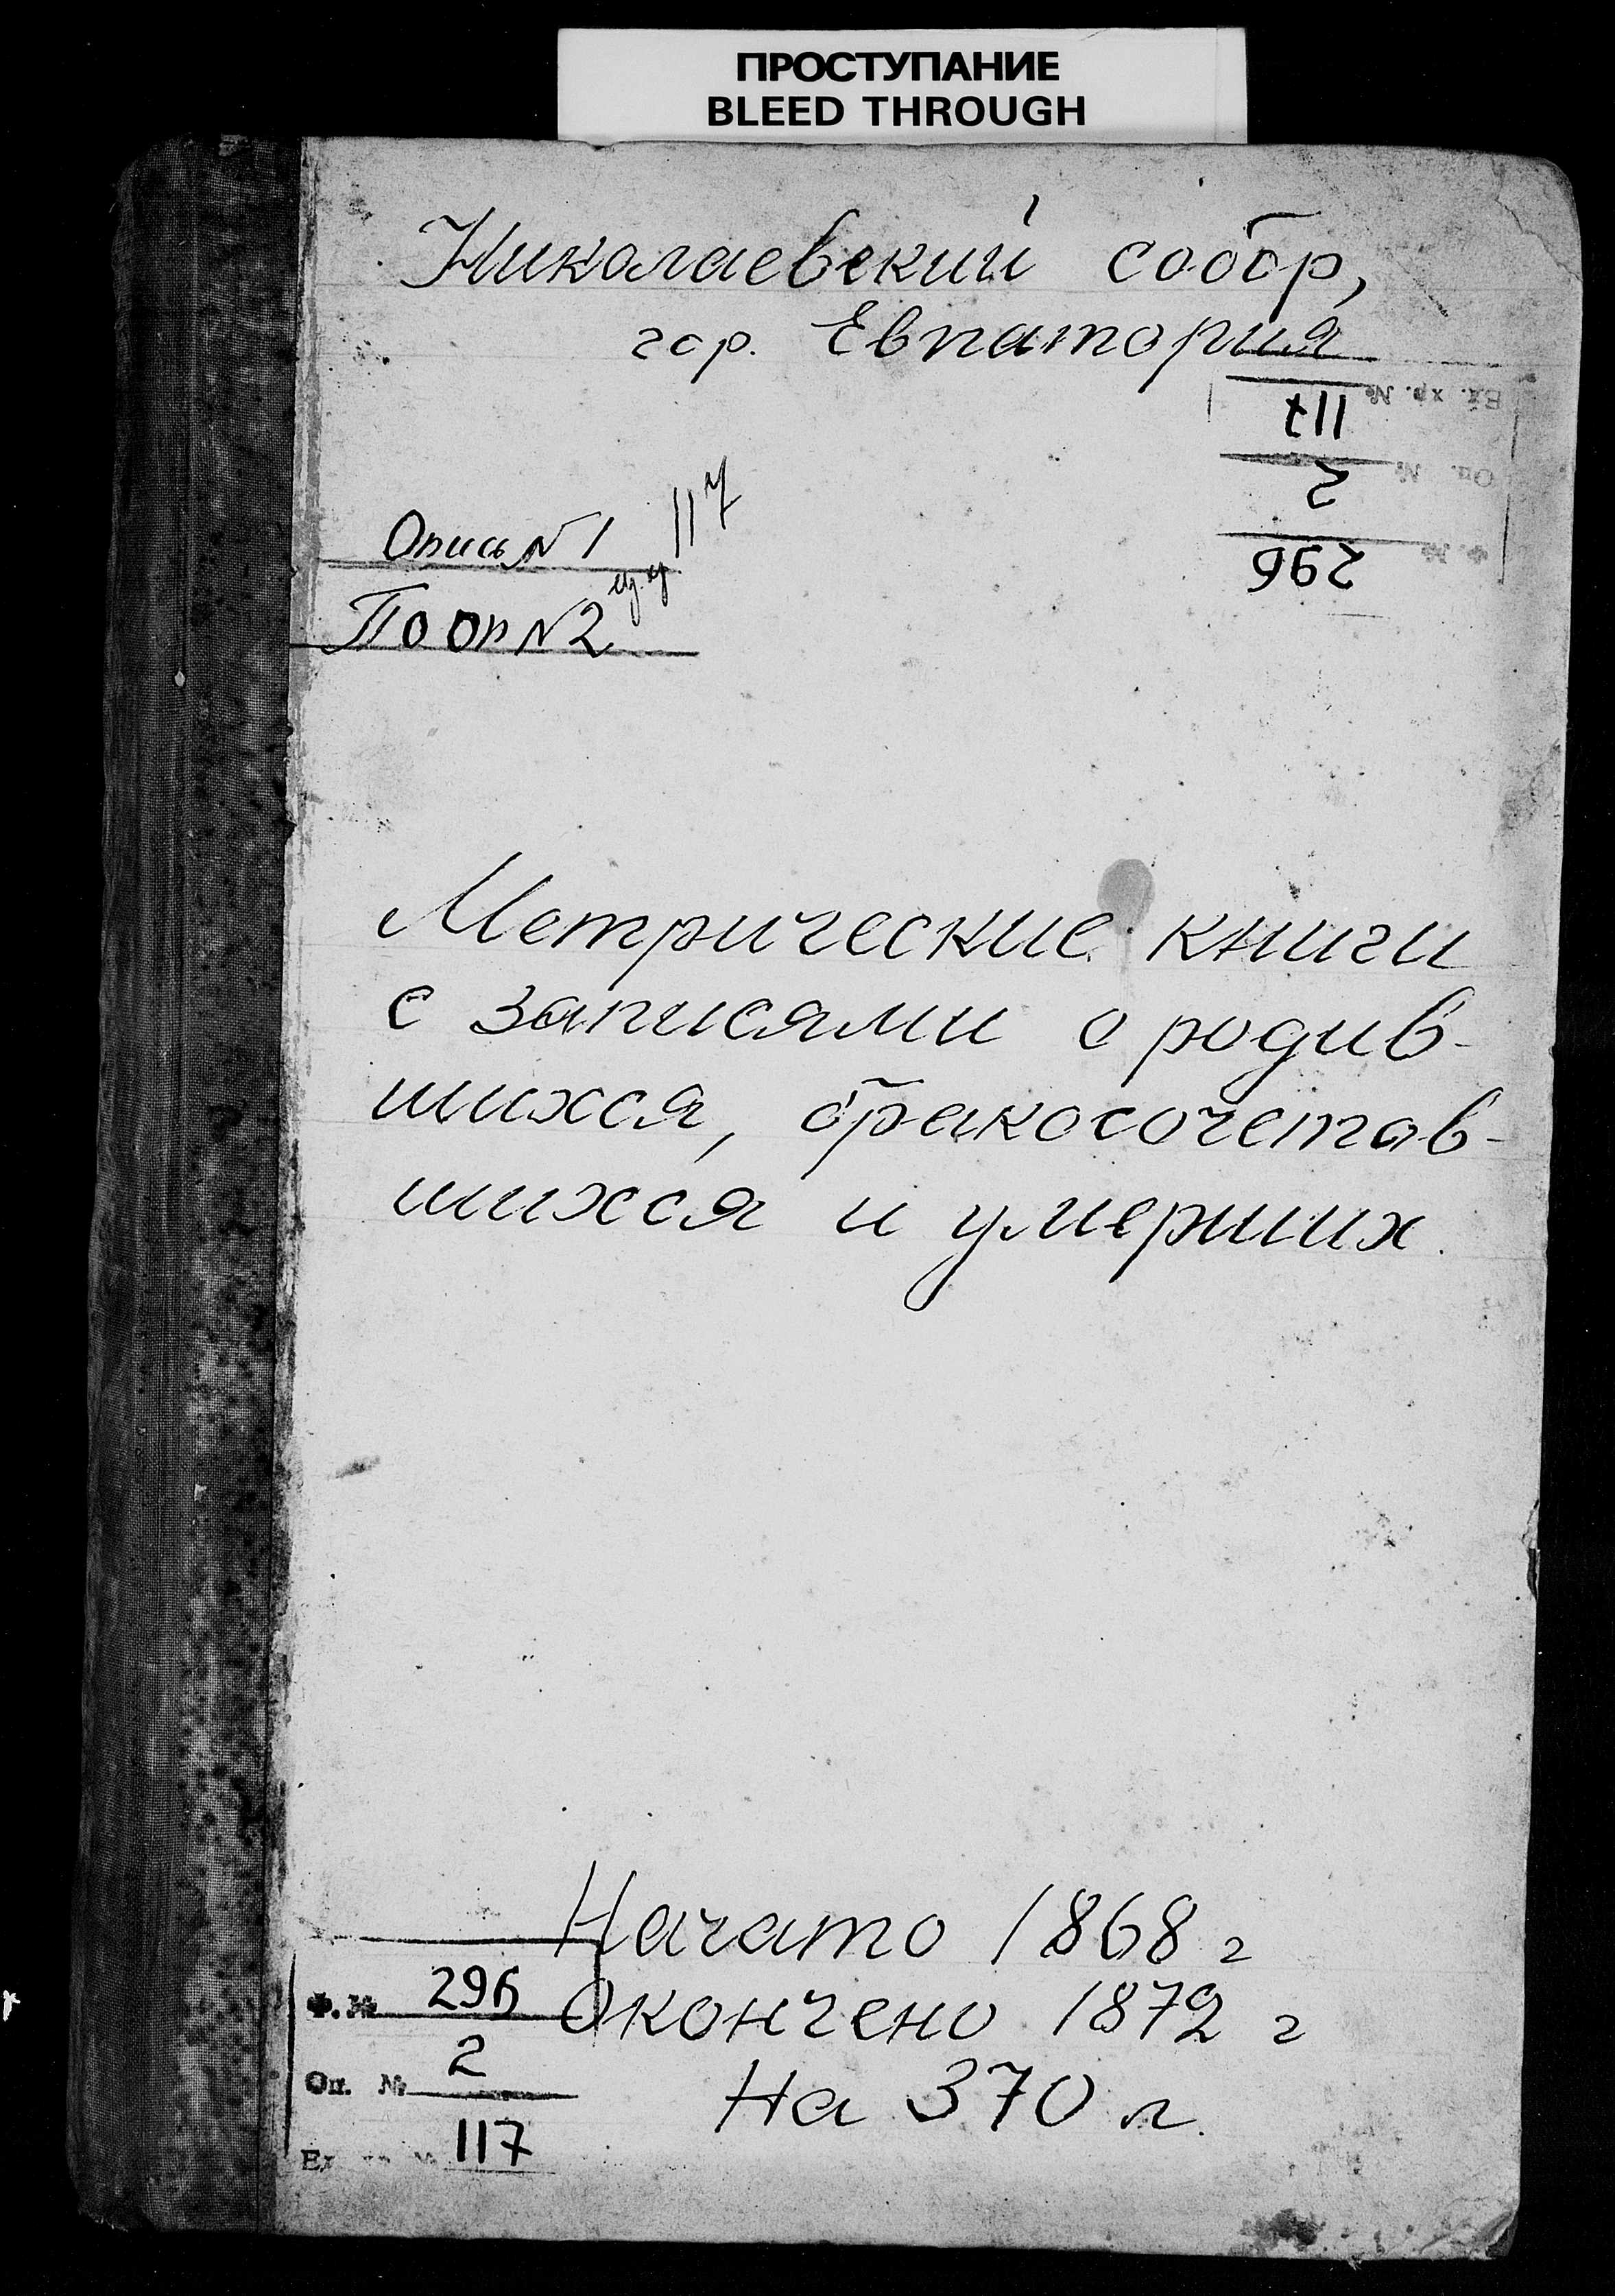 ПРОСТУПАНИЕ
BLEED THROUGH
Николаевский собор,
гор. Евпатория
Ед. хр. № 117
Оп. № 2
Ф. № 296
Опись № 1
117
По оп № 2
Метрические книги
с записями о родив-
шихся, бракосочетав-
шихся и умерших.
Начато 1868 г
Окончено 1872 г
На 370 л.
Ф. № 296
Оп. № 2
Ед 117